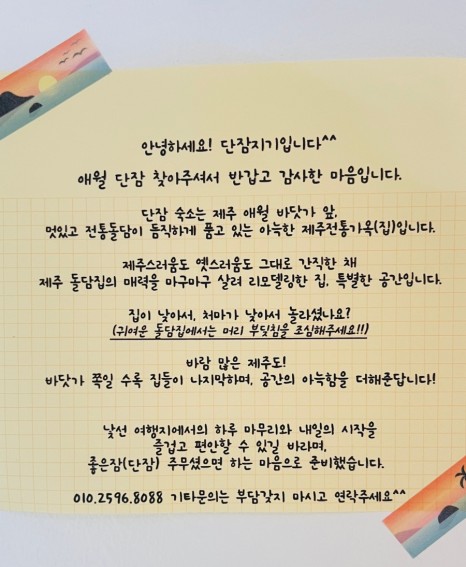 안녕하세요! 단잠지기입니다^^
애월 단잠 찾아주셔서 반갑고 감사한 마음입니다.
단잠 숙소는 제주 애월 바닷가 앞,
멋있고 전통돌담이 듬직하게 품고 있는 아늑한 제주전통가옥(집)입니다.
제주스러움도 옛스러움도 그대로 간직한 채
제주 돌담집의 매력을 마구마구 살려 리모델링한 집, 특별한 공간입니다.
집이 낮아서, 처마가 낮아서 놀라셨나요?
(귀여운 돌담집에서는 머리 부딪침을 조심해주세요!!)
바람 많은 제주도!
바닷가 쪽일 수록 집들이 나지막하며, 공간의 아늑함을 더해준답니다!
낯선 여행지에서의 하루 마무리와 내일의 시작을
즐겁고 편안할 수 있길 바라며,
좋은잠(단잠) 주무셨으면 하는 마음으로 준비했습니다.
010.2596.8088 기타문의는 부담갖지 마시고 연락주세요^^